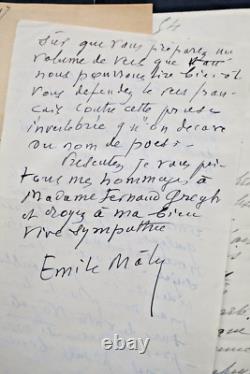 sûr que vous préparez un
volume de vers que
nous pourrons lire bientôt
vous défendez le vers fran-
çais contre cette prose
invertébrée qu'on décore
du nom de poésie.
Présentez, je vous prie
tous mes hommages à
Madame Fernand Gregh
et croyez à ma bien
vive sympathie
Emile Mâle